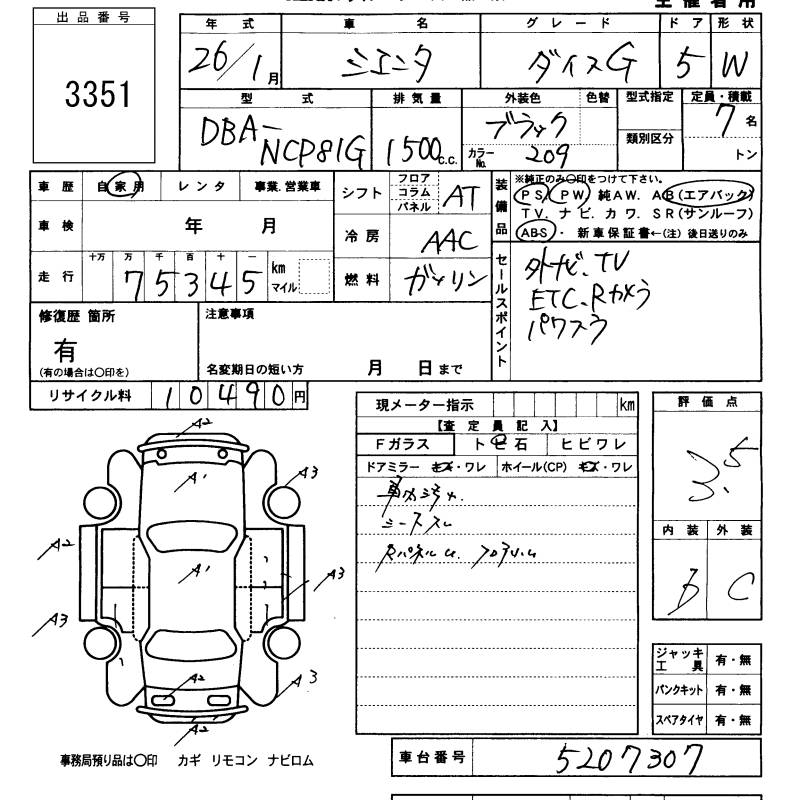 出品番号
3351
年式 車名 グレード ドア 形状
26/1月 シエンタ ダイスG 5 W
型式 排気量 外装色 色替 型式指定 定員・積載
DBA-NCP81G 1500c.c. ブラック 類別区分 7名
カラーNo. 209 トン
車歴 自家用 レンタ 事業.営業車
シフト フロア コラム パネル AT
装備品 ※純正のみ〇印をつけて下さい。
PS PW. 純AW. AB(エアバック)
TV. ナビ. カワ. SR(サンルーフ)
ABS ・ 新車保証書←(注) 後日送りのみ
車検 年 月
冷房 AAC
走行 十万 万 千 百 十 一
75345 km マイル
燃料 ガソリン
セールスポイント
外ナビ、TV
ETC、Rカメラ
パワスラ
修復歴 箇所
有
(有の場合は〇印を)
注意事項
名変期日の短い方 月 日まで
リサイクル料 10490円
現メーター指示 km
【査定員記入】
Fガラス トビ石 ヒビワレ
ドアミラー キズ・ワレ ホイール(CP) キズ・ワレ
車内汚れ.
シートスレ
評価点
3.5
内装 外装
B C
A2
A1
A3
A2
A1
A3
A3
A2
A3
A2
ジャッキ工具 有・無
パンクキット 有・無
スペアタイヤ 有・無
事務局預り品は〇印 カギ リモコン ナビロム
車台番号 5207307